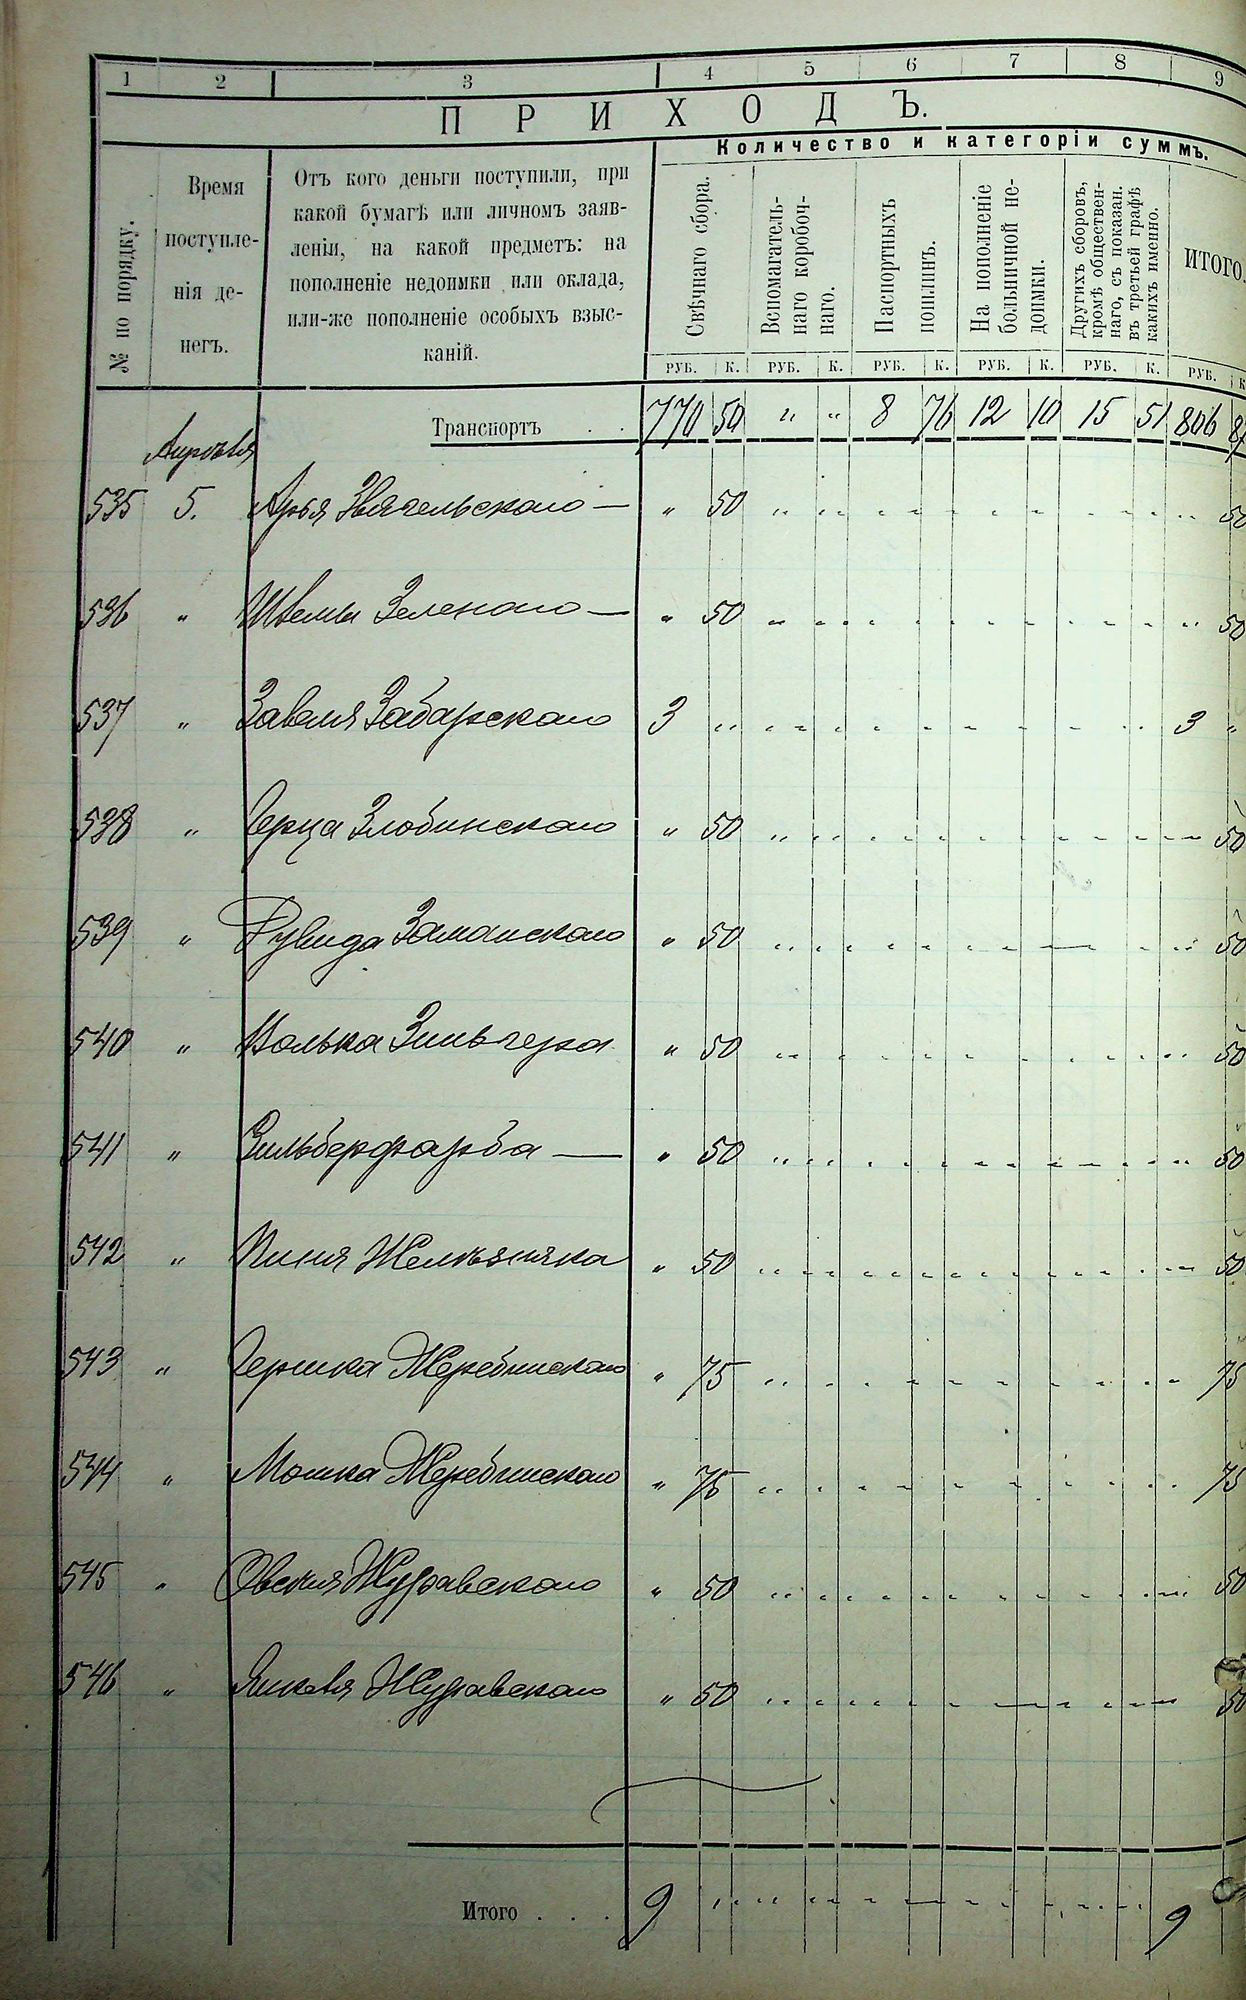 1 2 3 4 5 6 7 8 9
ПРИХОДЪ.
Количество и категоріи суммъ.
№ по порядку.
Время
поступле-
нія де-
негъ.
Отъ кого деньги поступили, при
какой бумагѣ или личномъ заяв-
леніи, на какой предметъ: на
пополненіе недоимки или оклада,
или-же пополненіе особыхъ взыс-
каній.
Свѣчнаго сбора.
Вспомагатель-
наго коробоч-
наго.
Паспортныхъ
пошлинъ.
На пополненіе
больничной не-
доимки.
Другихъ сборовъ,
кромѣ обществен-
наго, съ показан.
въ третьей графѣ
какихъ именно.
ИТОГО.
РУБ. К. РУБ. К. РУБ. К. РУБ. К. РУБ. К. РУБ. К
Транспортъ . . 770 50 " " 8 76 12 10 15 51 806 87
Апрѣля
535 5. Арья Звягельскаго — " 50 50
536 " Зеленаго — " 50 50
537 " Завеля Забарскаго 3 " 3 "
538 " Герца Злобинскаго " 50 50
539 " Заманскаго " 50 50
540 " Волька " 50 50
541 " Зильберфарба — " 50 50
542 " Пиня Желѣзняка " 50 50
543 " Гершка Жеребинскаго " 75 75
544 " Мошка Жеребинскаго " 75 75
545 " Овсія Журавскаго " 50 50
546 " Янкеля Журавскаго " 50 50
Итого . . . 9 " 9